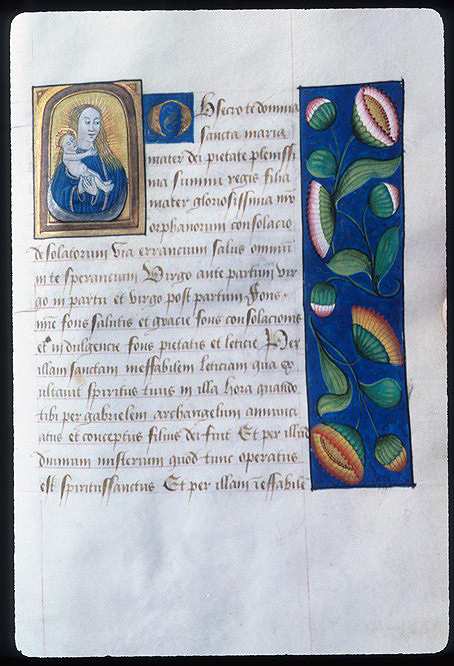 Obsecro te domina
sancta maria
mater dei pietate plenissi
ma summi regis filia
mater gloriosissima
orphanorum consolacio
desolatorum via errancium salus omnium
in te sperancium Virgo ante partum vir
go in partu et virgo post partum Fons
fons salutis et gracie fons consolacionis
et indulgencie fons pietatis et leticie Per
illam sanctam ineffabilem leticiam qua ex
ultavit spiritus tuus in illa hora quando
tibi per gabrielem archangelum annunci
atus et conceptus filius dei fuit Et per illud
divinum misterium quod tunc operatus
est spiritussanctus Et per illam ineffabilem